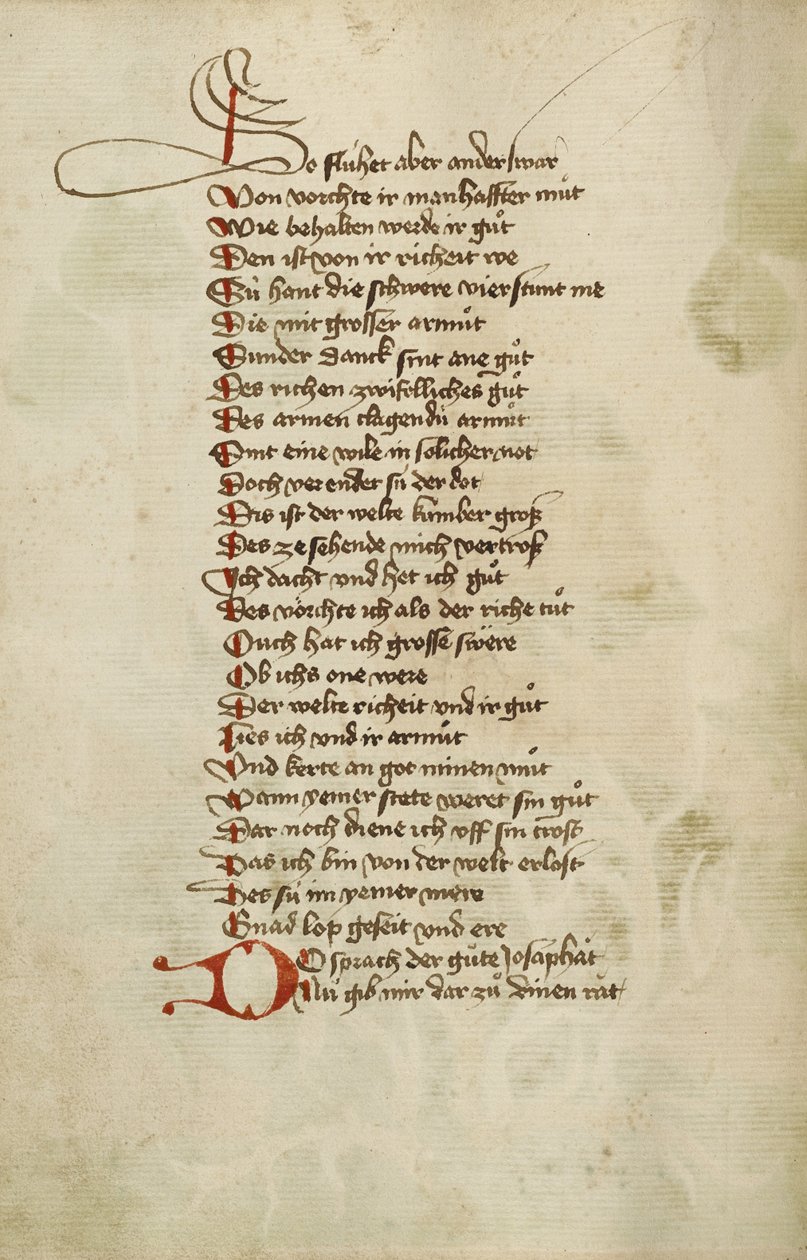 So flühet aber anderswar
Von vorchte ir manhaffter můt
Wie behalten werde ir gůt
Den ist von ir richeit we
Sü hant die schwere vierstunt me
Die mit grosser armůt
Sunder danck sint ane gůt
Des richen zwifelliches gůt
Des armen clagendü armůt
Sint eine wile in solicher not
Doch verendet sü der dot
Dis ist der welte kumber groß
Des ze sehende mich vertroß
Ich dacht vnd het ich gůt
Des vörchte ich als der riche tůt
Ouch hat ich grosse swëre
Ob ichs one were
Der welte richeit vnd ir gůt
Lies ich vnd ir armůt
Vnd kerte an got minen můt
Wann yemer stete weret sin gůt
Dar noch diene ich vff sin trost
Das ich bin von der welt erlost
Des sü im yemer mere
Gnad lop geseit vnd ere
DO sprach der gůte Josaphat
Nů gib mir dar zů dinen rat